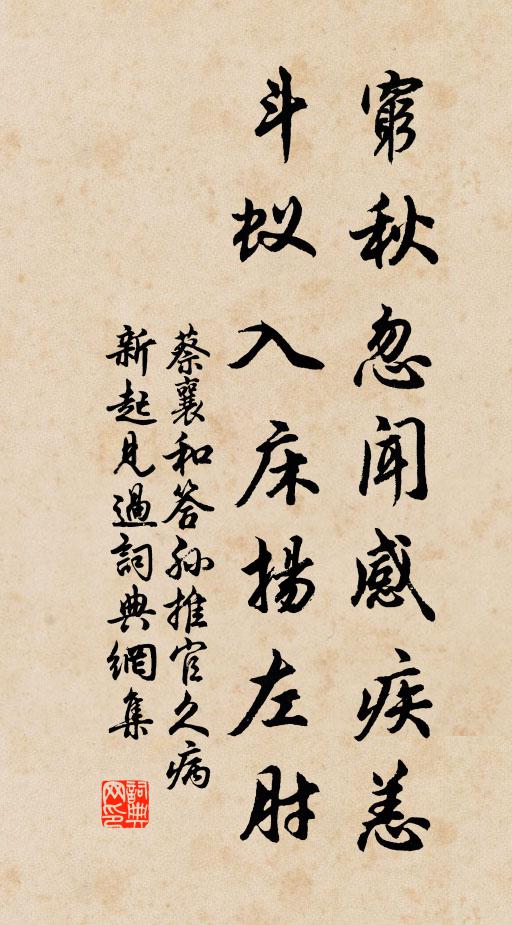 窮秋忽聞感疾恙
斗蚁入床揚左肘
蔡襄和答孙推官久病
新起見過詞典網集
詞典网印